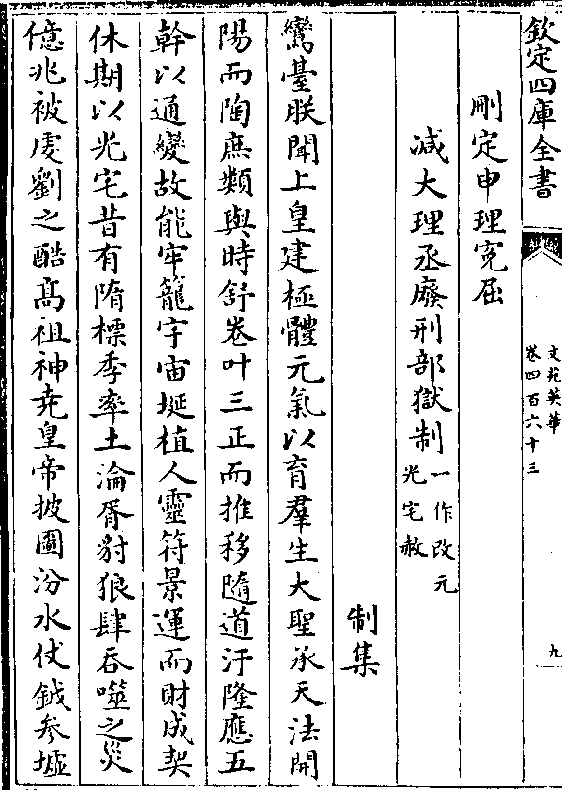 欽定四庫全書
文苑英華
卷四百六十三
九
刪定申理寃屈
減大理丞廢刑部獄制一作改元
光宅赦
制集
鸞臺朕聞上皇建極體元氣以育羣生大聖承天法開
陽而陶庶類與時舒卷叶三正而推移隨道汙隆應五
幹以通變故能牢籠宇宙埏植人靈符景運而財成契
休期以光宅昔有隋標季率土淪胥豺狼肆吞噬之災
億兆被虔劉之酷髙祖神堯皇帝披圖汾水仗鉞參墟